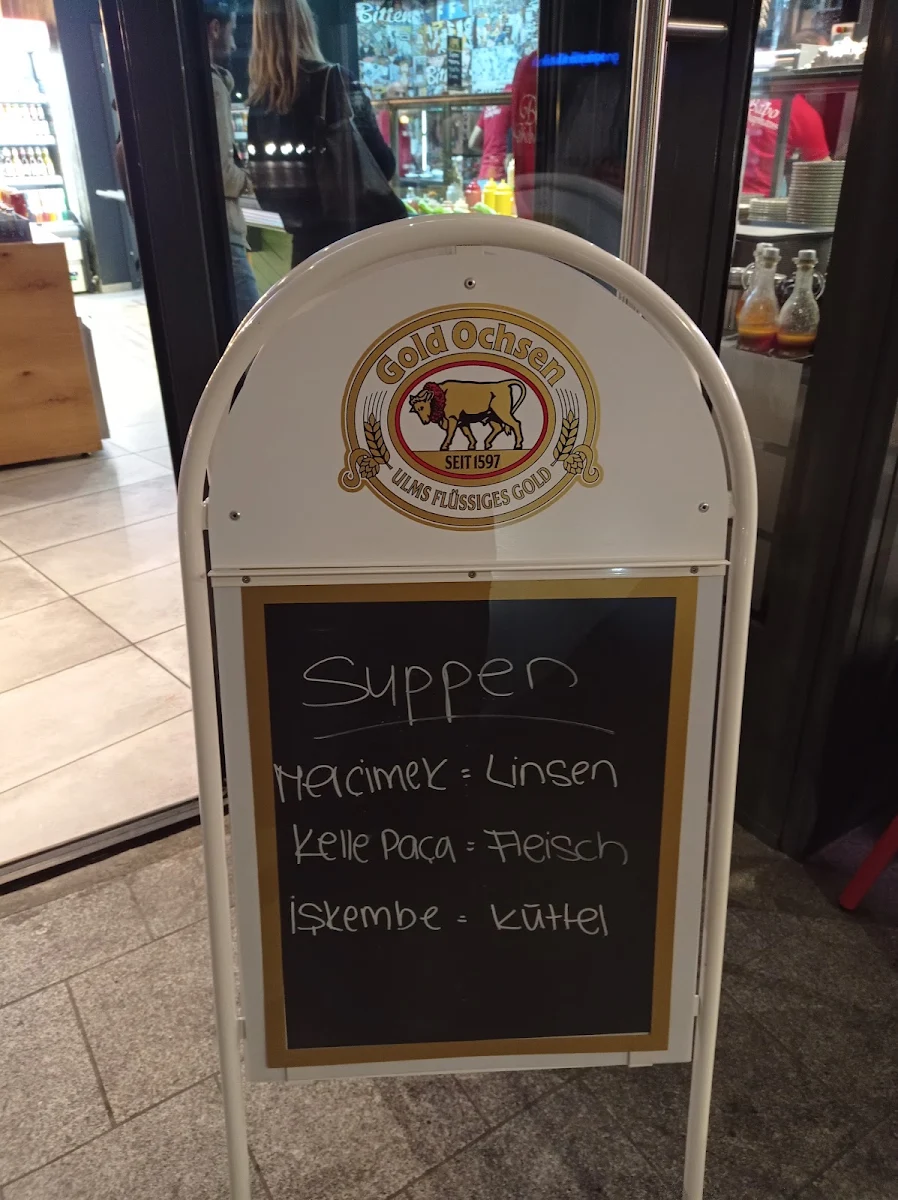 Bittere
Gold Ochsen
SEIT 1597
ULMS FLÜSSIGES GOLD
Suppen
Mercimek = Linsen
Kelle Paça = Fleisch
işkembe = Küttel